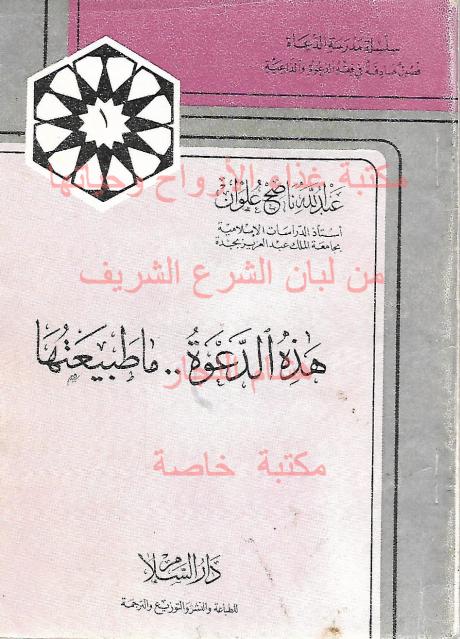 سلسلة مدرسة الدعاة
فصول هادفة في فقه الدعوة والداعية
١
مكتبة غذاء الأرواح وحياتها
عبد الله ناصح علوان
أستاذ الدراسات الإسلامية
بجامعة الملك عبد العزيز بجدة
من لبان الشرع الشريف
هٰذِهِ الدَّعْوَةُ .. مَا طَبِيعَتُهَا
مكتبة خاصة
دار السلام
للطباعة والنشر والتوزيع والترجمة